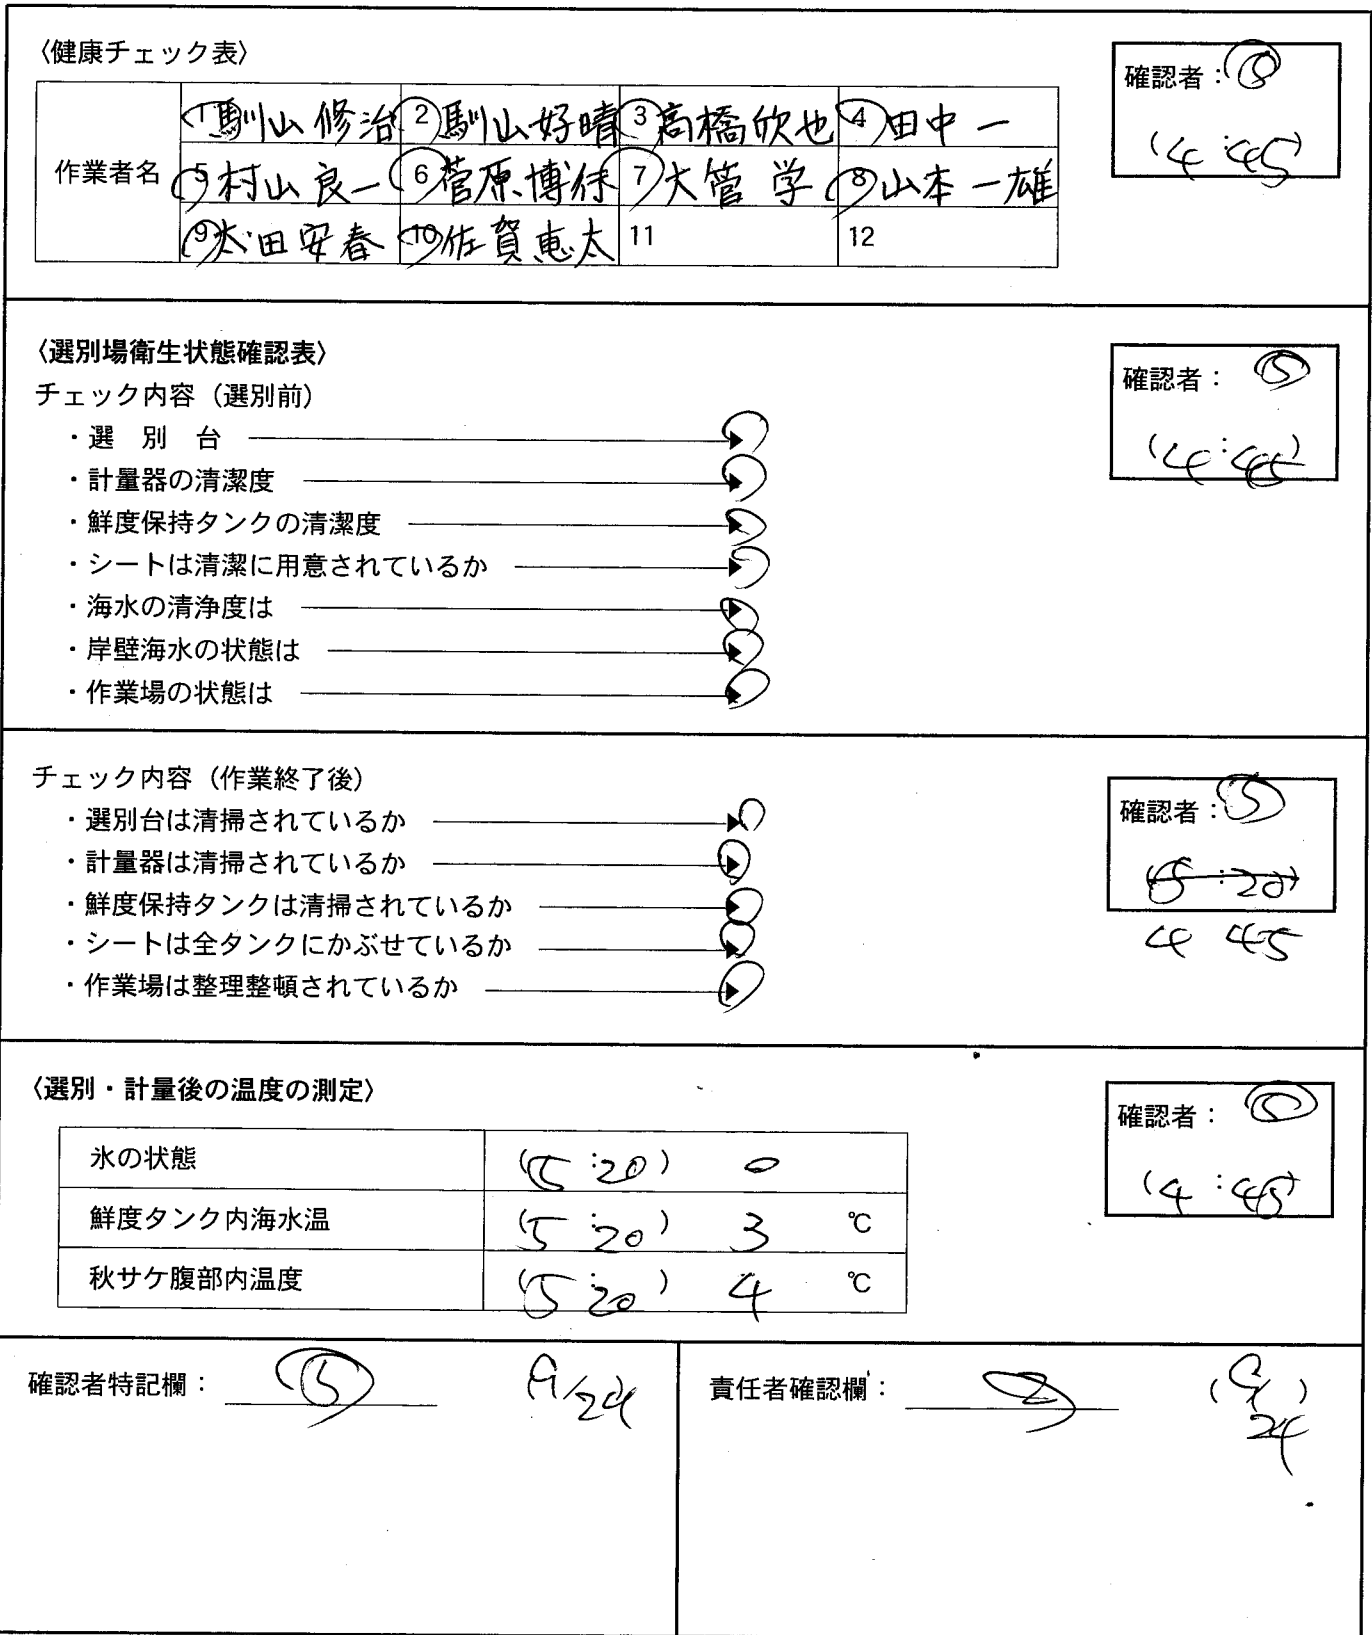 〈健康チェック表〉
確認者：⑤
(4:45)
作業者名
①馴山修治 ②馴山好晴 ③高橋欣也 ④田中一
⑤村山良一 ⑥菅原博 ⑦大管学 ⑧山本一雄
⑨太田安春 ⑩佐賀恵太 11 12
〈選別場衛生状態確認表〉
確認者：⑤
(4:45)
チェック内容（選別前）
・選　別　台
・計量器の清潔度
・鮮度保持タンクの清潔度
・シートは清潔に用意されているか
・海水の清浄度は
・岸壁海水の状態は
・作業場の状態は
チェック内容（作業終了後）
確認者：⑤
(5:20)
4 45
・選別台は清掃されているか
・計量器は清掃されているか
・鮮度保持タンクは清掃されているか
・シートは全タンクにかぶせているか
・作業場は整理整頓されているか
〈選別・計量後の温度の測定〉
確認者：⑤
(4:45)
氷の状態 (5:20) 0
鮮度タンク内海水温 (5:20) 3 ℃
秋サケ腹部内温度 (5:20) 4 ℃
確認者特記欄：⑤ 9/24
責任者確認欄：② (9/24)